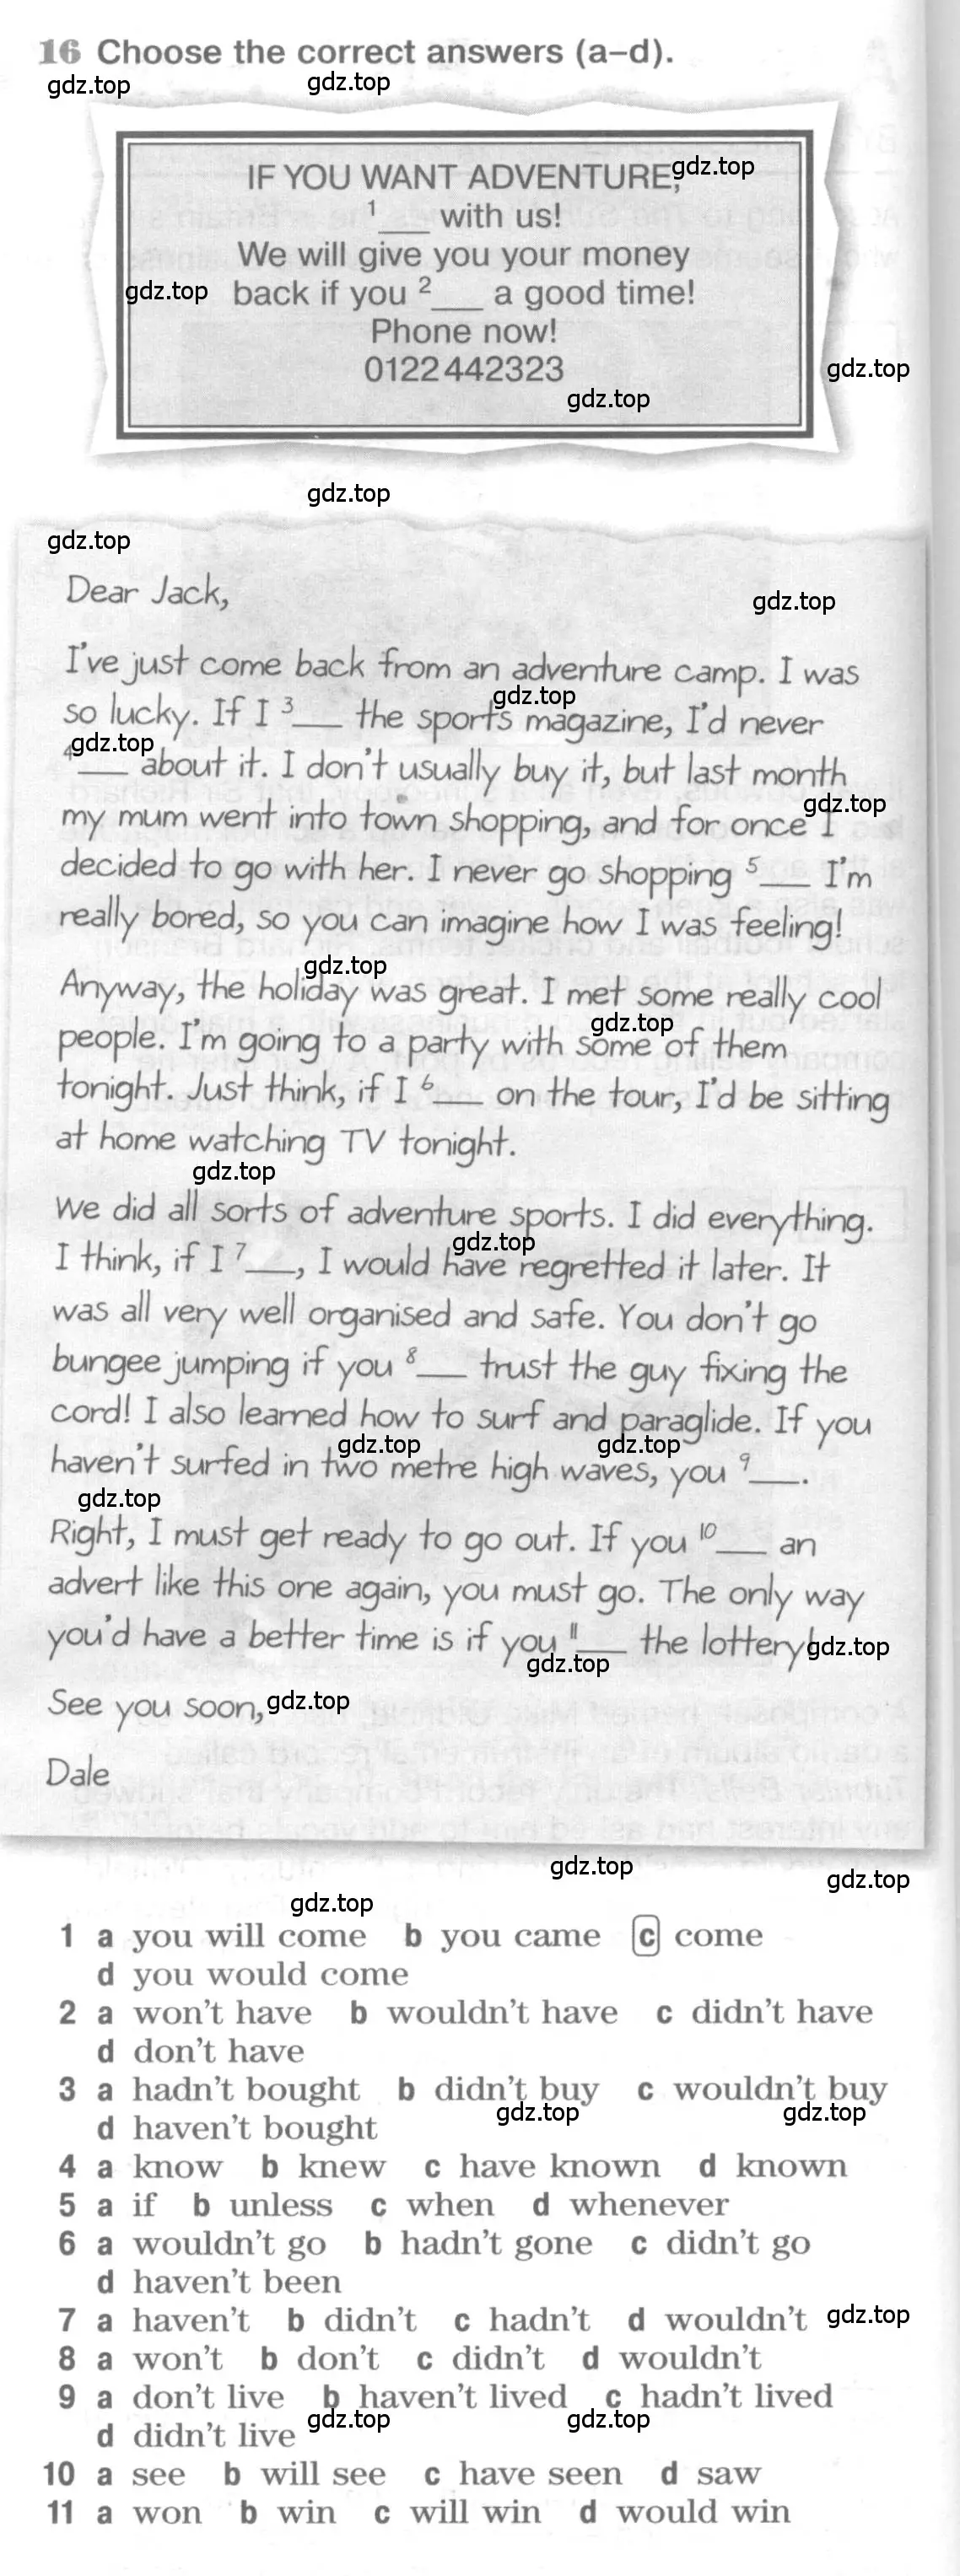 16 Choose the correct answers (a–d).
gdz.top gdz.top
IF YOU WANT ADVENTURE, gdz.top
1___ with us!
We will give you your money
gdz.top back if you 2___ a good time!
Phone now!
0122 442323 gdz.top
gdz.top
gdz.top
gdz.top
Dear Jack,
gdz.top
I've just come back from an adventure camp. I was
so lucky. If I 3___ the sports magazine, I'd never
gdz.top
4___ about it. I don't usually buy it, but last month
gdz.top
gdz.top
my mum went into town shopping, and for once I
decided to go with her. I never go shopping 5___ I'm
really bored, so you can imagine how I was feeling!
gdz.top
Anyway, the holiday was great. I met some really cool
gdz.top
people. I'm going to a party with some of them
tonight. Just think, if I 6___ on the tour, I'd be sitting
at home watching TV tonight.
gdz.top
We did all sorts of adventure sports. I did everything.
gdz.top
I think, if I 7___, I would have regretted it later. It
was all very well organised and safe. You don't go
bungee jumping if you 8___ trust the guy fixing the
cord! I also learned how to surf and paraglide. If you
gdz.top gdz.top
haven't surfed in two metre high waves, you 9___.
gdz.top
Right, I must get ready to go out. If you 10___ an
advert like this one again, you must go. The only way
you'd have a better time is if you 11___ the lottery!
gdz.top
gdz.top
See you soon, gdz.top
Dale
gdz.top gdz.top
gdz.top
1 a you will come b you came c come
d you would come
2 a won't have b wouldn't have c didn't have
d don't have
3 a hadn't bought b didn't buy c wouldn't buy
gdz.top gdz.top
d haven't bought
4 a know b knew c have known d known
5 a if b unless c when d whenever
6 a wouldn't go b hadn't gone c didn't go
d haven't been
7 a haven't b didn't c hadn't d wouldn't gdz.top
8 a won't b don't c didn't d wouldn't
9 a don't live b haven't lived c hadn't lived
gdz.top gdz.top
d didn't live
10 a see b will see c have seen d saw
11 a won b win c will win d would win